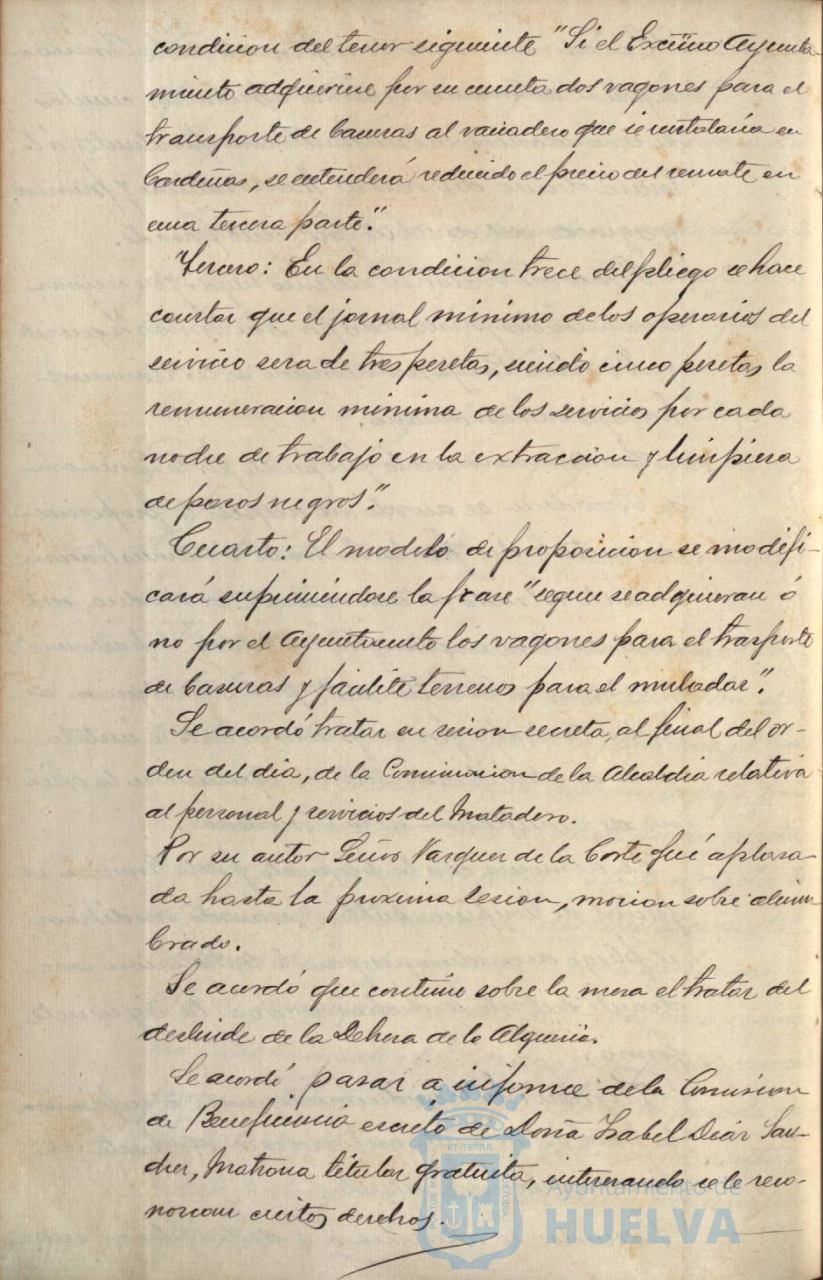 condicion del tenor siguiente "Si el Excmo Ayunta-
miento adquiriese por su cuenta dos vagones para el
transporte de basuras al vaciadero que se instalaria en
Cardeñas, se entenderá reducido el precio del remate en
una tercera parte".
Tercero: En la condicion trece del pliego se hace
constar que el jornal minimo de los operarios del
servicio sera de tres pesetas, siendo cinco pesetas la
remuneracion minima de los servicios por cada
noche de trabajo en la extraccion y limpieza
de pozos negros".
Cuarto: El modelo de proposicion se modifi-
cará suprimiendose la frase "segun se adquieran ó
no por el Ayuntamiento los vagones para el trasporte
de basuras y facilite terrenos para el muladar".
Se acordó tratar en sesion secreta, al final del or-
den del dia, de la Comunicacion de la Alcaldia relativa
al personal y servicios del Matadero.
Por su autor Señor Vazquez de la Corte fué aplaza-
da hasta la proxima sesion, mocion sobre alum
brado.
Se acordó que continue sobre la mesa el tratar del
deslinde de la Dehesa de la Alqueria.
Se acordó pasar a informe de la Comision
de Beneficencia escrito de Doña Isabel Diaz San-
chez, Matrona titular gratuita, interesando se le reco-
nozcan ciertos derechos.
Ayuntamiento de
HUELVA